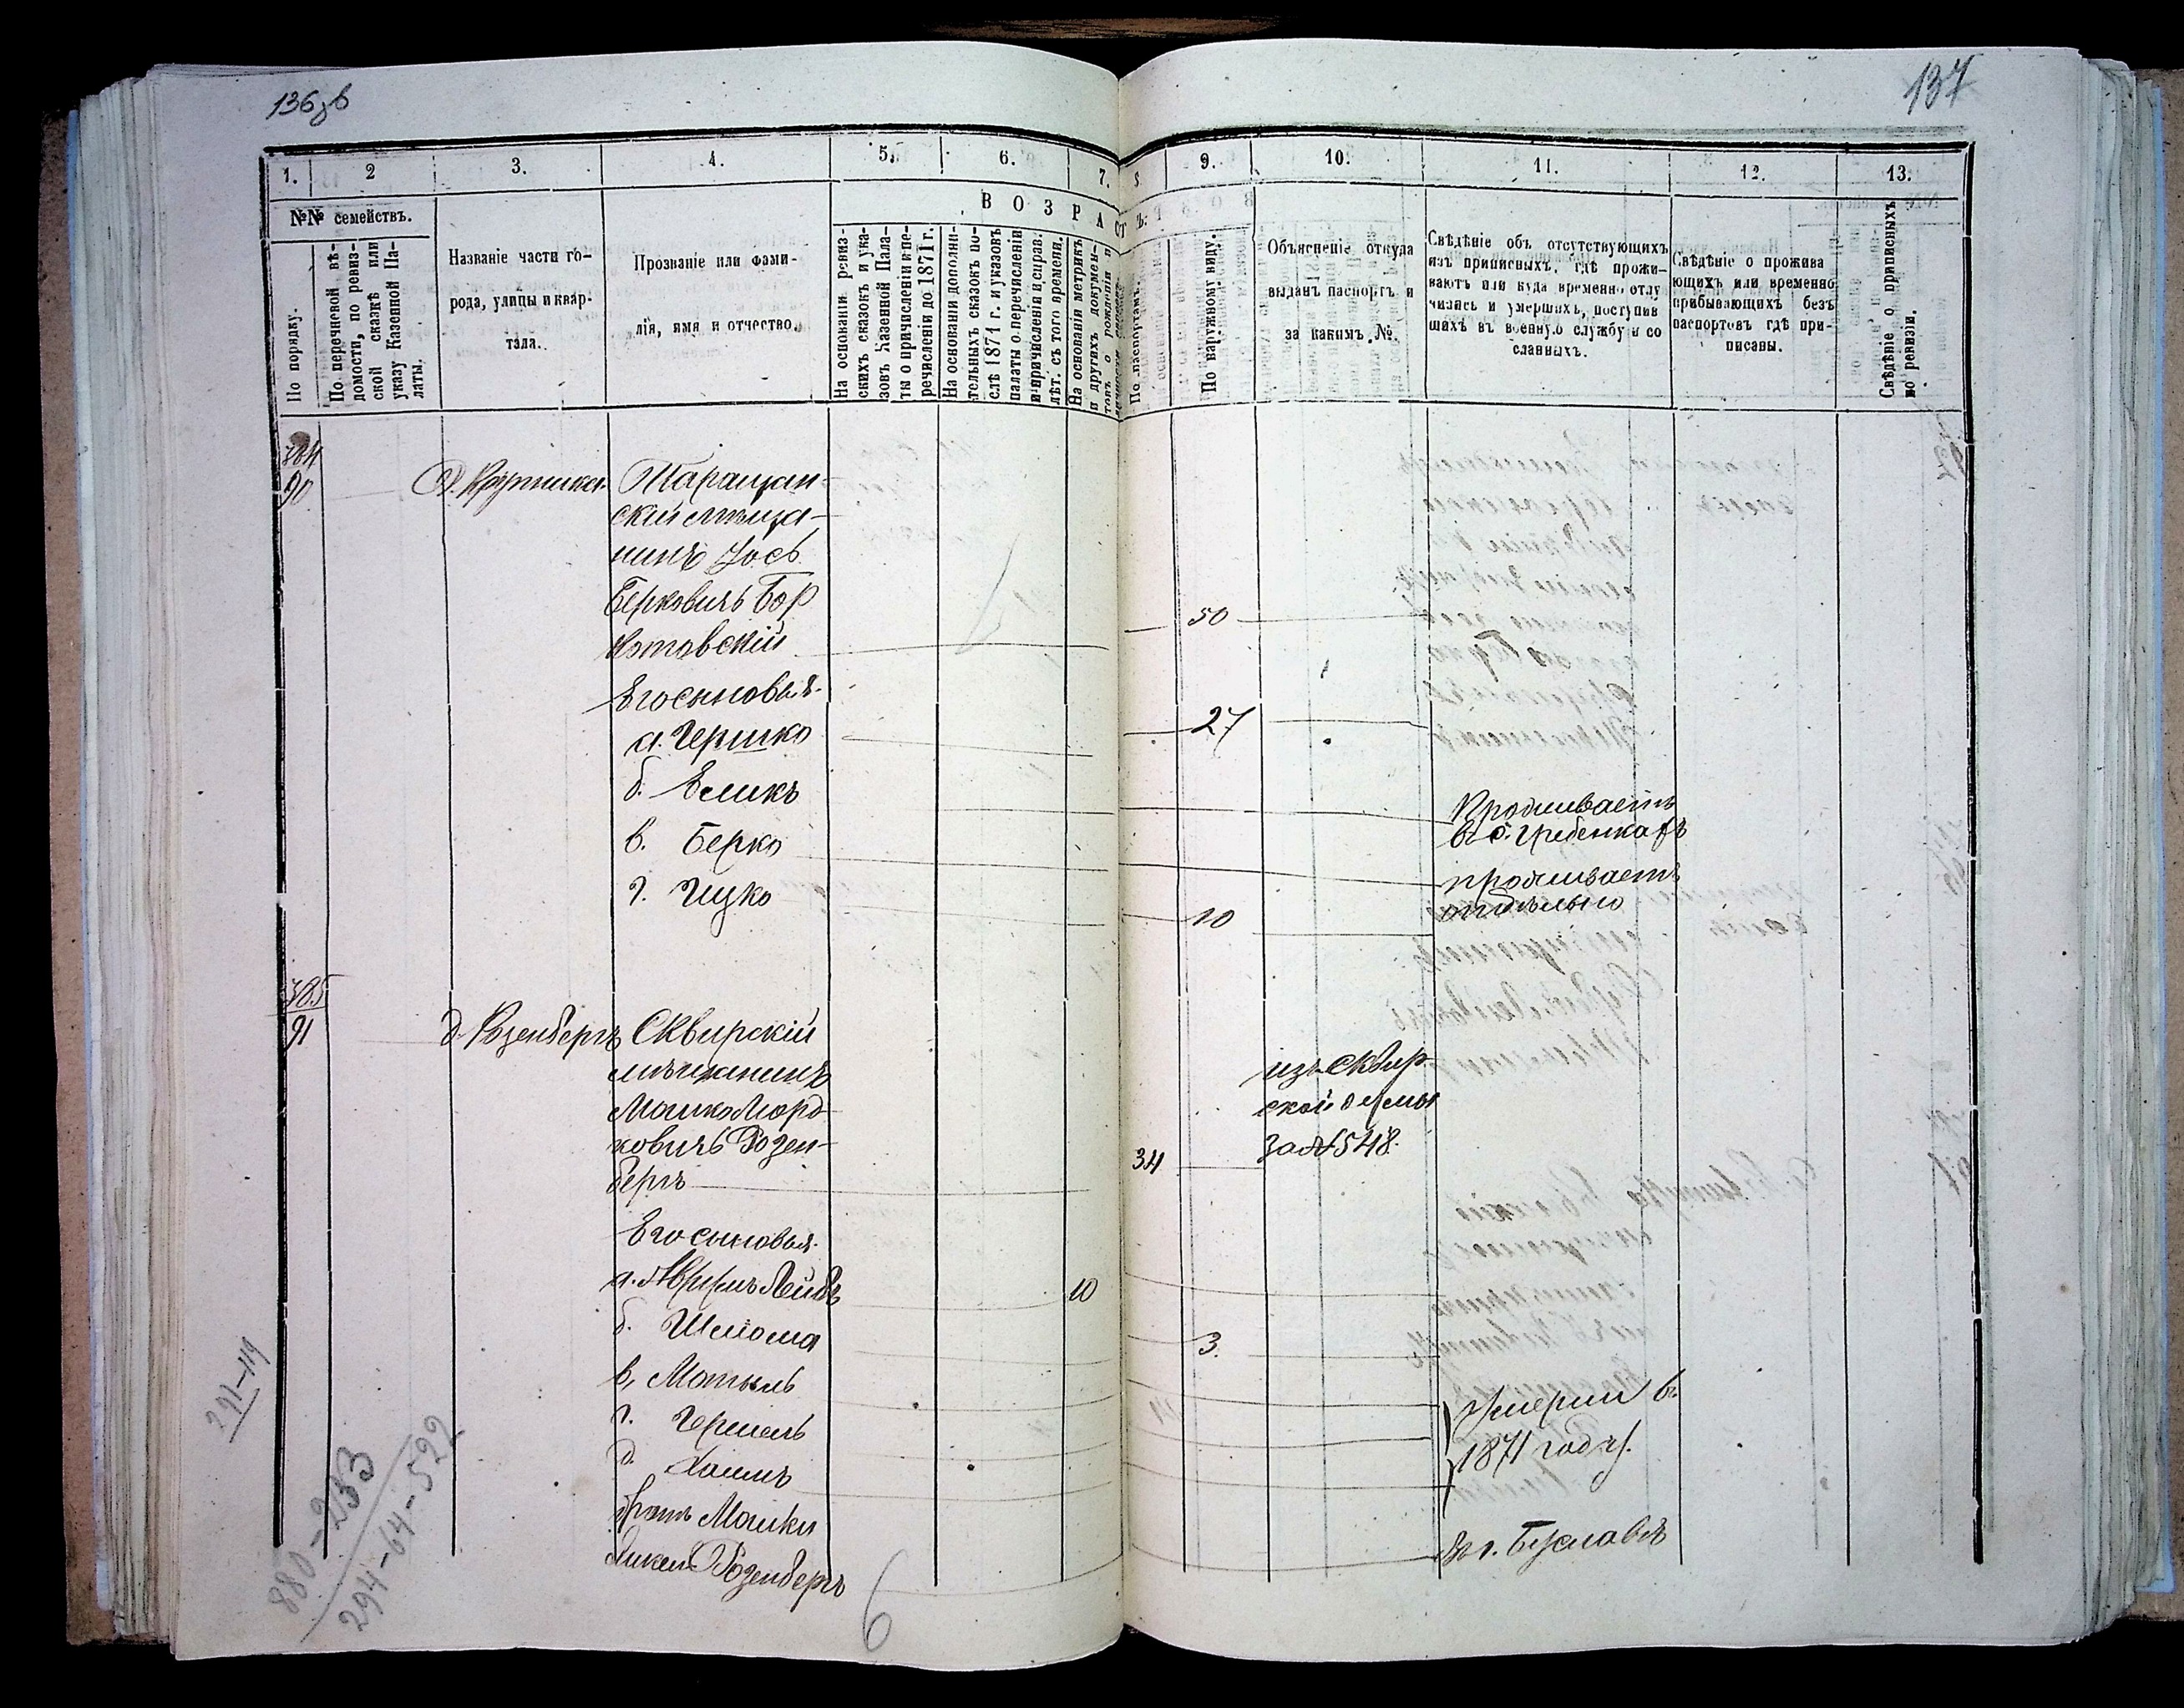 136зв
137
1.
2
3.
4.
5.
6.
7.
8.
9.
10.
11.
12.
13.
№№ семействъ.
ВОЗРАСТЪ.
По порядку.
По перечневой вѣ-
домости, по ревиз-
ской сказкѣ или
указу Казенной Па-
латы.
Названіе части го-
рода, улицы и квар-
тала.
Прозваніе или фами-
лія, имя и отчество.
На основаніи ревиз-
скихъ сказокъ и ука-
зовъ Казенной Пала-
ты о причисленіи и пе-
речисленіи до 1871 г.
На основаніи дополни-
тельныхъ сказокъ по-
слѣ 1871 г. и указовъ
палаты о перечисленіи
и причисленіи и справ.
лѣт. съ того времени.
На основаніи метрикъ
и другихъ докумен-
товъ о рожденіи
По паспортамъ.
По наружному виду.
Объясненіе откуда
выданъ паспортъ и
за какимъ №.
Свѣдѣніе объ отсутствующихъ
изъ приписныхъ, гдѣ прожи-
ваютъ или куда временно отлу
чились и умершихъ, поступив
шихъ въ военную службу и со
сланныхъ.
Свѣдѣніе о прожива
ющихъ или временно
прибывающихъ безъ
паспортовъ гдѣ при-
писаны.
Свѣдѣніе о приписныхъ
по ревизіи.
384
90
д. Крупника
Таращан-
скій мѣща-
нинъ Іось
Берковичъ Бор
котовскій
50
Его сыновья.
а. Гершко
27
б. Зеликъ
Проживаетъ
въ с. Гребенкахъ
в. Берко
проживаетъ
отдѣльно
г. Ицко
10
385
91
д. Розенбергъ
Сквирскій
мѣщанинъ
Мошко Морд
ковичъ Розен-
бергъ
34
изъ Сквир
ской думы
за № 548.
Его сыновья.
а. Аврумъ Лейбъ
10
б. Шлома
3.
в. Мотель
г. Гершель
д. Хаимъ
Умерли въ
1871 году.
братъ Мошки
Розенбергъ
въ г. Бугславѣ
6
291-119
880-233
294-64-522